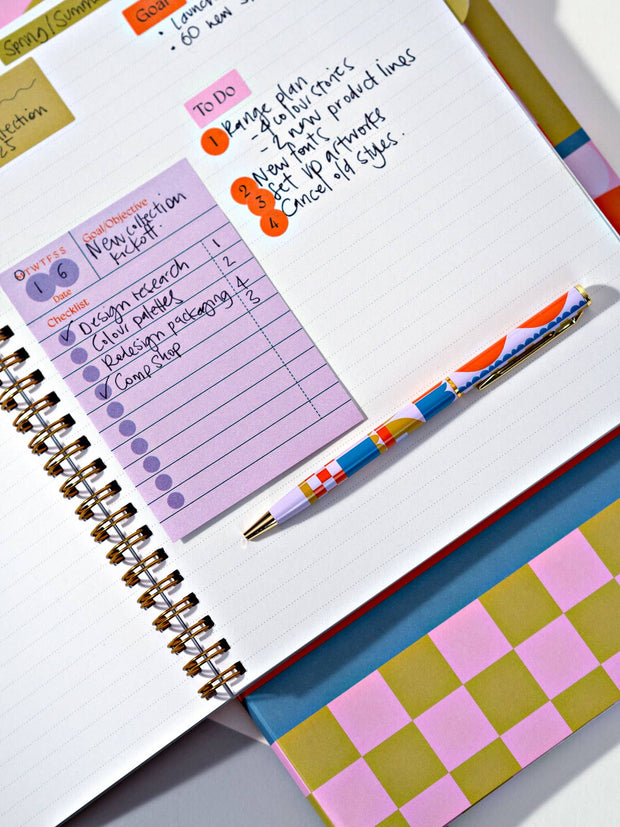 Spring/Summ
Goal
• launch
• 60 new s
llection
25
To Do
1 Range plan
- 4 colour stories
- 2 new product lines
2 New fonts
3 Set up artworks
4 Cancel old styles.
MTWTFSS
1 6
Date
Goal/Objective
New collection
kickoff.
Checklist
✓ Design research 1
Colour palettes 2
Redesign packaging 4
✓ Comp shop 3